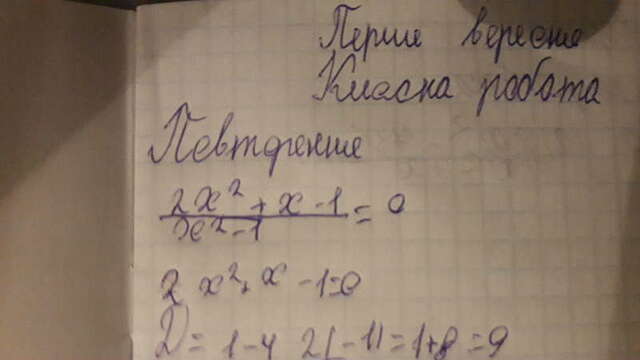 Перше вересня
Класна робота
Повторення
2x² + x - 1 / x² - 1 = 0
2x² + x - 1 = 0
D = 1 - 4·2(-1) = 1 + 8 = 9